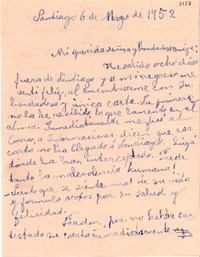 Santiago 6 de Mayo de 1952
Mi querida señora y bondadosa amiga:
He salido ocho días
fuera de Santiago y a mi regreso me
sentí feliz, al encontrarme con su
bondadosa y única carta. La primera
no la he recibido lo que lamento en el
alma. Inmediatamente fui al
Correo, a Informaciones dicen que esa
carta no ha llegado a Santiago. Luego
donde la han interceptado. Puede
tanto la malevolencia humana!
Siento que se sienta mal de su vista
y formulo votos por su salud y
felicidad.
Perdón, por no haber con
testado su carta inmediatamente